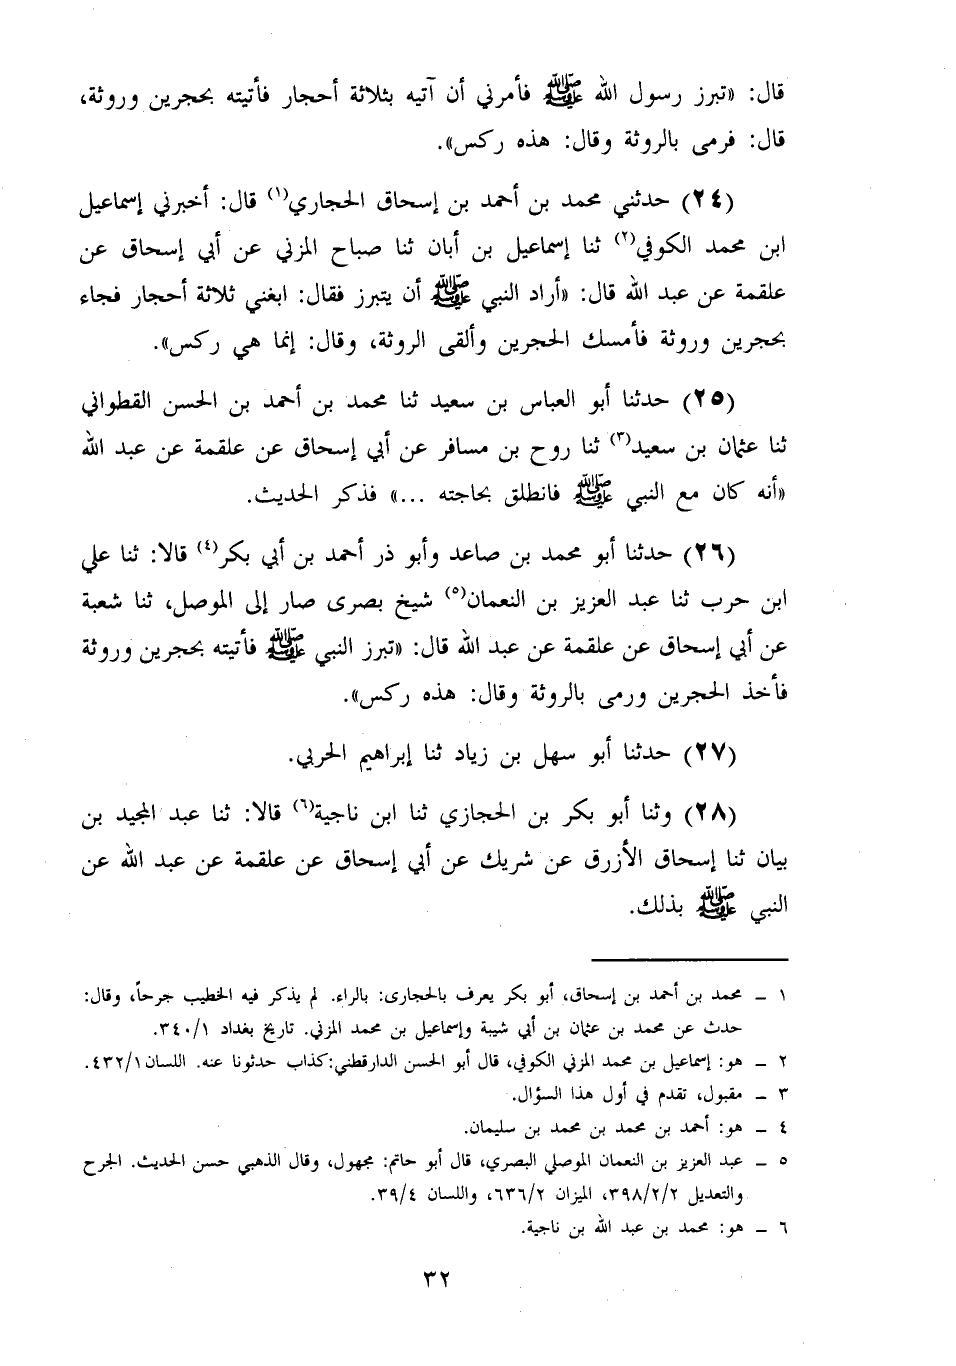 قال: «تبرز رسول الله ﷺ فأمرني أن آتيه بثلاثة أحجار فأتيته بحجرين وروثة،
قال: فرمى بالروثة وقال: هذه ركس».
(٢٤) حدثني محمد بن أحمد بن إسحاق الحجاري(١) قال: أخبرني إسماعيل
ابن محمد الكوفي(٢) ثنا إسماعيل بن أبان ثنا صباح المزني عن أبي إسحاق عن
علقمة عن عبد الله قال: «أراد النبي ﷺ أن يتبرز فقال: ابغني ثلاثة أحجار فجاء
بحجرين وروثة فأمسك الحجرين وألقى الروثة، وقال: إنما هي ركس».
(٢٥) حدثنا أبو العباس بن سعيد ثنا محمد بن أحمد بن الحسن القطواني
ثنا عثمان بن سعيد(٣) ثنا روح بن مسافر عن أبي إسحاق عن علقمة عن عبد الله
«أنه كان مع النبي ﷺ فانطلق بحاجته ...» فذكر الحديث.
(٢٦) حدثنا أبو محمد بن صاعد وأبو ذر أحمد بن أبي بكر(٤) قالا: ثنا علي
ابن حرب ثنا عبد العزيز بن النعمان(٥) شيخ بصرى صار إلى الموصل، ثنا شعبة
عن أبي إسحاق عن علقمة عن عبد الله قال: «تبرز النبي ﷺ فأتيته بحجرين وروثة
فأخذ الحجرين ورمى بالروثة وقال: هذه ركس».
(٢٧) حدثنا أبو سهل بن زياد ثنا إبراهيم الحربي.
(٢٨) وثنا أبو بكر بن الحجازي ثنا ابن ناجية(٦) قالا: ثنا عبد المجيد بن
بيان ثنا إسحاق الأزرق عن شريك عن أبي إسحاق عن علقمة عن عبد الله عن
النبي ﷺ بذلك.
١ ــ محمد بن أحمد بن إسحاق، أبو بكر يعرف بالحجارى: بالراء. لم يذكر فيه الخطيب جرحاً، وقال:
حدث عن محمد بن عثمان بن أبي شيبة وإسماعيل بن محمد المزني. تاريخ بغداد ٣٤٠/١.
٢ ــ هو: إسماعيل بن محمد المزني الكوفي، قال أبو الحسن الدارقطني:كذاب حدثونا عنه. اللسان ٤٣٢/١.
٣ ــ مقبول، تقدم في أول هذا السؤال.
٤ ــ هو: أحمد بن محمد بن محمد بن سليمان.
٥ ــ عبد العزيز بن النعمان الموصلي البصري، قال أبو حاتم: مجهول، وقال الذهبي حسن الحديث. الجرح
والتعديل ٣٩٨/٢/٢، الميزان ٦٣٦/٢، واللسان ٣٩/٤.
٦ ــ هو: محمد بن عبد الله بن ناجية.
٣٢